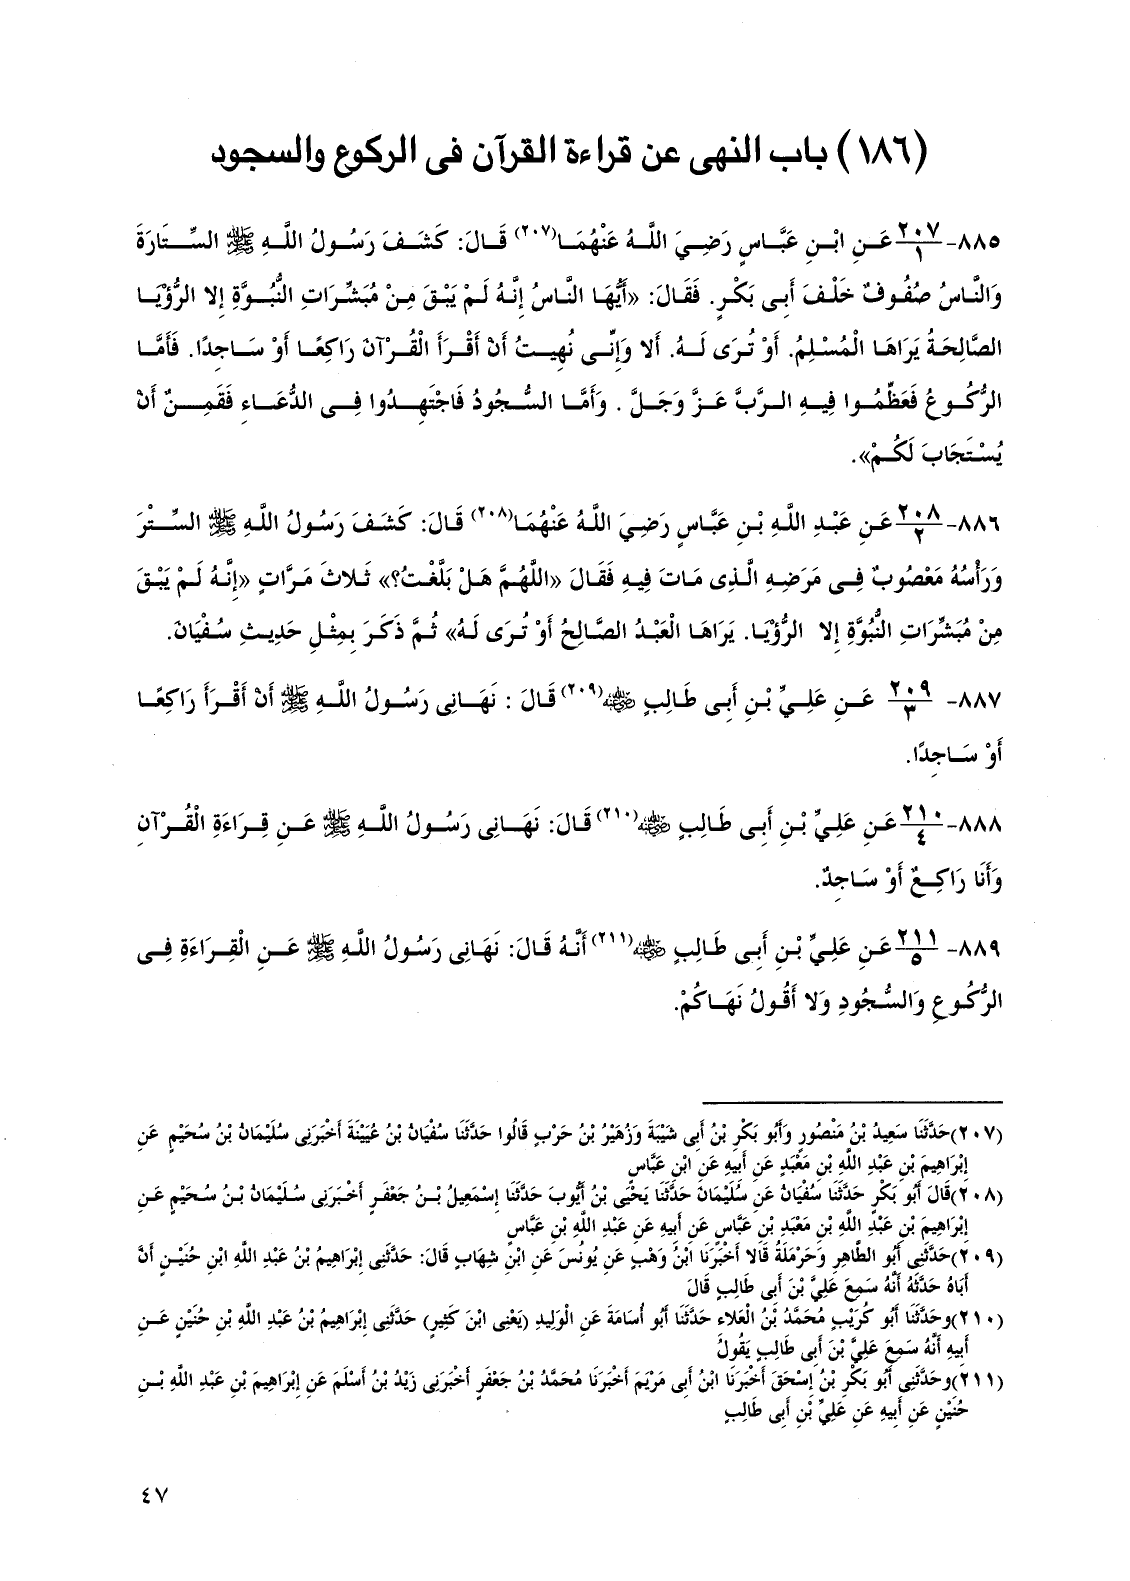 (١٨٦) باب النهى عن قراءة القرآن فى الركوع والسجود
٨٨٥- ٢٠٧/١ عَنِ ابْنِ عَبَّاسٍ رَضِيَ اللَّهُ عَنْهُمَا(٢٠٧) قَالَ: كَشَفَ رَسُولُ اللَّهِ ﷺ السِّتَارَةَ
وَالنَّاسُ صُفُوفٌ خَلْفَ أَبِى بَكْرٍ. فَقَالَ: «أَيُّهَا النَّاسُ إِنَّهُ لَمْ يَبْقَ مِنْ مُبَشِّرَاتِ النُّبُوَّةِ إِلا الرُّؤْيَا
الصَّالِحَةُ يَرَاهَا الْمُسْلِمُ. أَوْ تُرَى لَهُ. أَلا وَإِنِّى نُهِيتُ أَنْ أَقْرَأَ الْقُرْآنَ رَاكِعًا أَوْ سَاجِدًا. فَأَمَّا
الرُّكُوعُ فَعَظِّمُوا فِيهِ الرَّبَّ عَزَّ وَجَلَّ . وَأَمَّا السُّجُودُ فَاجْتَهِدُوا فِى الدُّعَاءِ فَقَمِنٌ أَنْ
يُسْتَجَابَ لَكُمْ».
٨٨٦- ٢٠٨/٢ عَنِ عَبْدِ اللَّهِ بْنِ عَبَّاسٍ رَضِيَ اللَّهُ عَنْهُمَا(٢٠٨) قَالَ: كَشَفَ رَسُولُ اللَّهِ ﷺ السِّتْرَ
وَرَأْسُهُ مَعْصُوبٌ فِى مَرَضِهِ الَّذِى مَاتَ فِيهِ فَقَالَ «اللَّهُمَّ هَلْ بَلَّغْتُ؟» ثَلاثَ مَرَّاتٍ «إِنَّهُ لَمْ يَبْقَ
مِنْ مُبَشِّرَاتِ النُّبُوَّةِ إِلا الرُّؤْيَا. يَرَاهَا الْعَبْدُ الصَّالِحُ أَوْ تُرَى لَهُ» ثُمَّ ذَكَرَ بِمِثْلِ حَدِيثِ سُفْيَانَ.
٨٨٧- ٢٠٩/٣ عَنِ عَلِيِّ بْنِ أَبِى طَالِبٍ ﵁(٢٠٩) قَالَ : نَهَانِى رَسُولُ اللَّهِ ﷺ أَنْ أَقْرَأَ رَاكِعًا
أَوْ سَاجِدًا.
٨٨٨- ٢١٠/٤ عَنِ عَلِيِّ بْنِ أَبِى طَالِبٍ ﵁(٢١٠) قَالَ: نَهَانِى رَسُولُ اللَّهِ ﷺ عَنِ قِرَاءَةِ الْقُرْآنِ
وَأَنَا رَاكِعٌ أَوْ سَاجِدٌ.
٨٨٩- ٢١١/٥ عَنِ عَلِيِّ بْنِ أَبِى طَالِبٍ ﵁(٢١١) أَنَّهُ قَالَ: نَهَانِى رَسُولُ اللَّهِ ﷺ عَنِ الْقِرَاءَةِ فِى
الرُّكُوعِ وَالسُّجُودِ وَلا أَقُولُ نَهَاكُمْ.
(٢٠٧)حَدَّثَنَا سَعِيدُ بْنُ مَنْصُورٍ وَأَبُو بَكْرِ بْنُ أَبِى شَيْبَةَ وَزُهَيْرُ بْنُ حَرْبٍ قَالُوا حَدَّثَنَا سُفْيَانُ بْنُ عُيَيْنَةَ أَخْبَرَنِى سُلَيْمَانُ بْنُ سُحَيْمٍ عَنِ
إِبْرَاهِيمَ بْنِ عَبْدِ اللَّهِ بْنِ مَعْبَدٍ عَنِ أَبِيهِ عَنِ ابْنِ عَبَّاسٍ
(٢٠٨)قَالَ أَبُو بَكْرٍ حَدَّثَنَا سُفْيَانُ عَنِ سُلَيْمَانَ حَدَّثَنَا يَحْيَى بْنُ أَيُّوبَ حَدَّثَنَا إِسْمَعِيلُ بْنُ جَعْفَرٍ أَخْبَرَنِى سُلَيْمَانُ بْنُ سُحَيْمٍ عَنِ
إِبْرَاهِيمَ بْنِ عَبْدِ اللَّهِ بْنِ مَعْبَدِ بْنِ عَبَّاسٍ عَنِ أَبِيهِ عَنِ عَبْدِ اللَّهِ بْنِ عَبَّاسٍ
(٢٠٩)حَدَّثَنِى أَبُو الطَّاهِرِ وَحَرْمَلَةُ قَالا أَخْبَرَنَا ابْنُ وَهْبٍ عَنِ يُونُسَ عَنِ ابْنِ شِهَابٍ قَالَ: حَدَّثَنِى إِبْرَاهِيمُ بْنُ عَبْدِ اللَّهِ ابْنِ حُنَيْنٍ أَنَّ
أَبَاهُ حَدَّثَهُ أَنَّهُ سَمِعَ عَلِيَّ بْنَ أَبِى طَالِبٍ قَالَ
(٢١٠)وحَدَّثَنَا أَبُو كُرَيْبٍ مُحَمَّدُ بْنُ الْعَلاءِ حَدَّثَنَا أَبُو أُسَامَةَ عَنِ الْوَلِيدِ (يَعْنِى ابْنَ كَثِيرٍ) حَدَّثَنِى إِبْرَاهِيمُ بْنُ عَبْدِ اللَّهِ بْنِ حُنَيْنٍ عَنِ
أَبِيهِ أَنَّهُ سَمِعَ عَلِيَّ بْنَ أَبِى طَالِبٍ يَقُولُ
(٢١١)وحَدَّثَنِى أَبُو بَكْرِ بْنُ إِسْحَقَ أَخْبَرَنَا ابْنُ أَبِى مَرْيَمَ أَخْبَرَنَا مُحَمَّدُ بْنُ جَعْفَرٍ أَخْبَرَنِى زَيْدُ بْنُ أَسْلَمَ عَنِ إِبْرَاهِيمَ بْنِ عَبْدِ اللَّهِ بْنِ
حُنَيْنٍ عَنِ أَبِيهِ عَنِ عَلِيِّ بْنِ أَبِى طَالِبٍ
٤٧